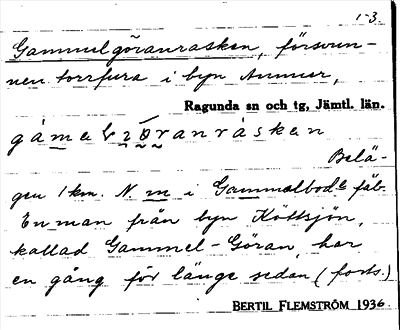 1-3.
Gammelgöranrasken, försvun-
nen torrfura i byn Ammer,
Ragunda sn och tg, Jämtl. län.
Belä-
gen 1 km. N m i Gammelbode fäb.
En man från byn Köttsjön,
kallad Gammel-Göran har
en gång för länge sedan (forts.)
BERTIL FLEMSTRÖM 1936.